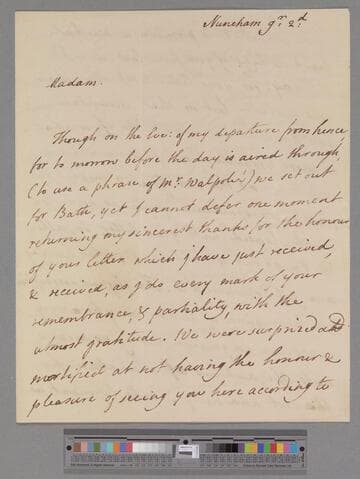 Nuneham 9r. 2d.
Madam.
Though on the Eve: of my departure from hence
for to morrow before the day is aired through,
(to use a phrase of Mr. Walpole's) we set out
for Bath, yet I cannot defer one moment
returning my sincerest thanks for the honour
of your letter which I have just received,
& received, as I do every mark of your
remembrance, & partiality, with the
utmost gratitude. We were surprized and
mortified at not having the honour &
pleasure of seeing you here according to